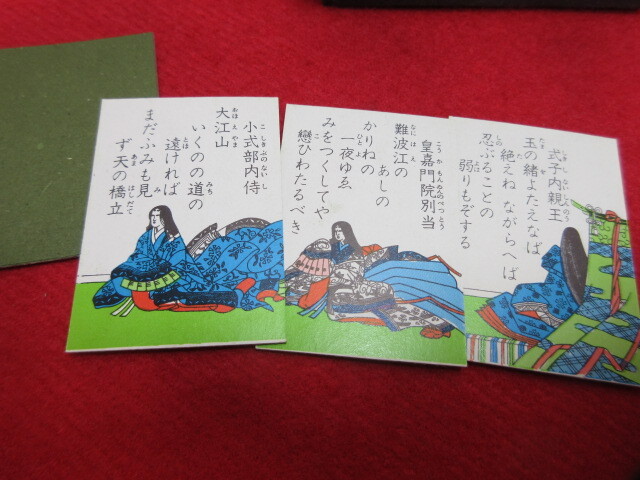 式子内親王
玉の緒よたえなば
絶えね ながらへば
忍ぶることの
弱りもぞする
皇嘉門院別当
難波江の
あしの
かりねの
一夜ゆゑ
みをつくしてや
戀ひわたるべき
小式部内侍
大江山
いくのの道の
遠ければ
まだふみも見
ず 天の橋立